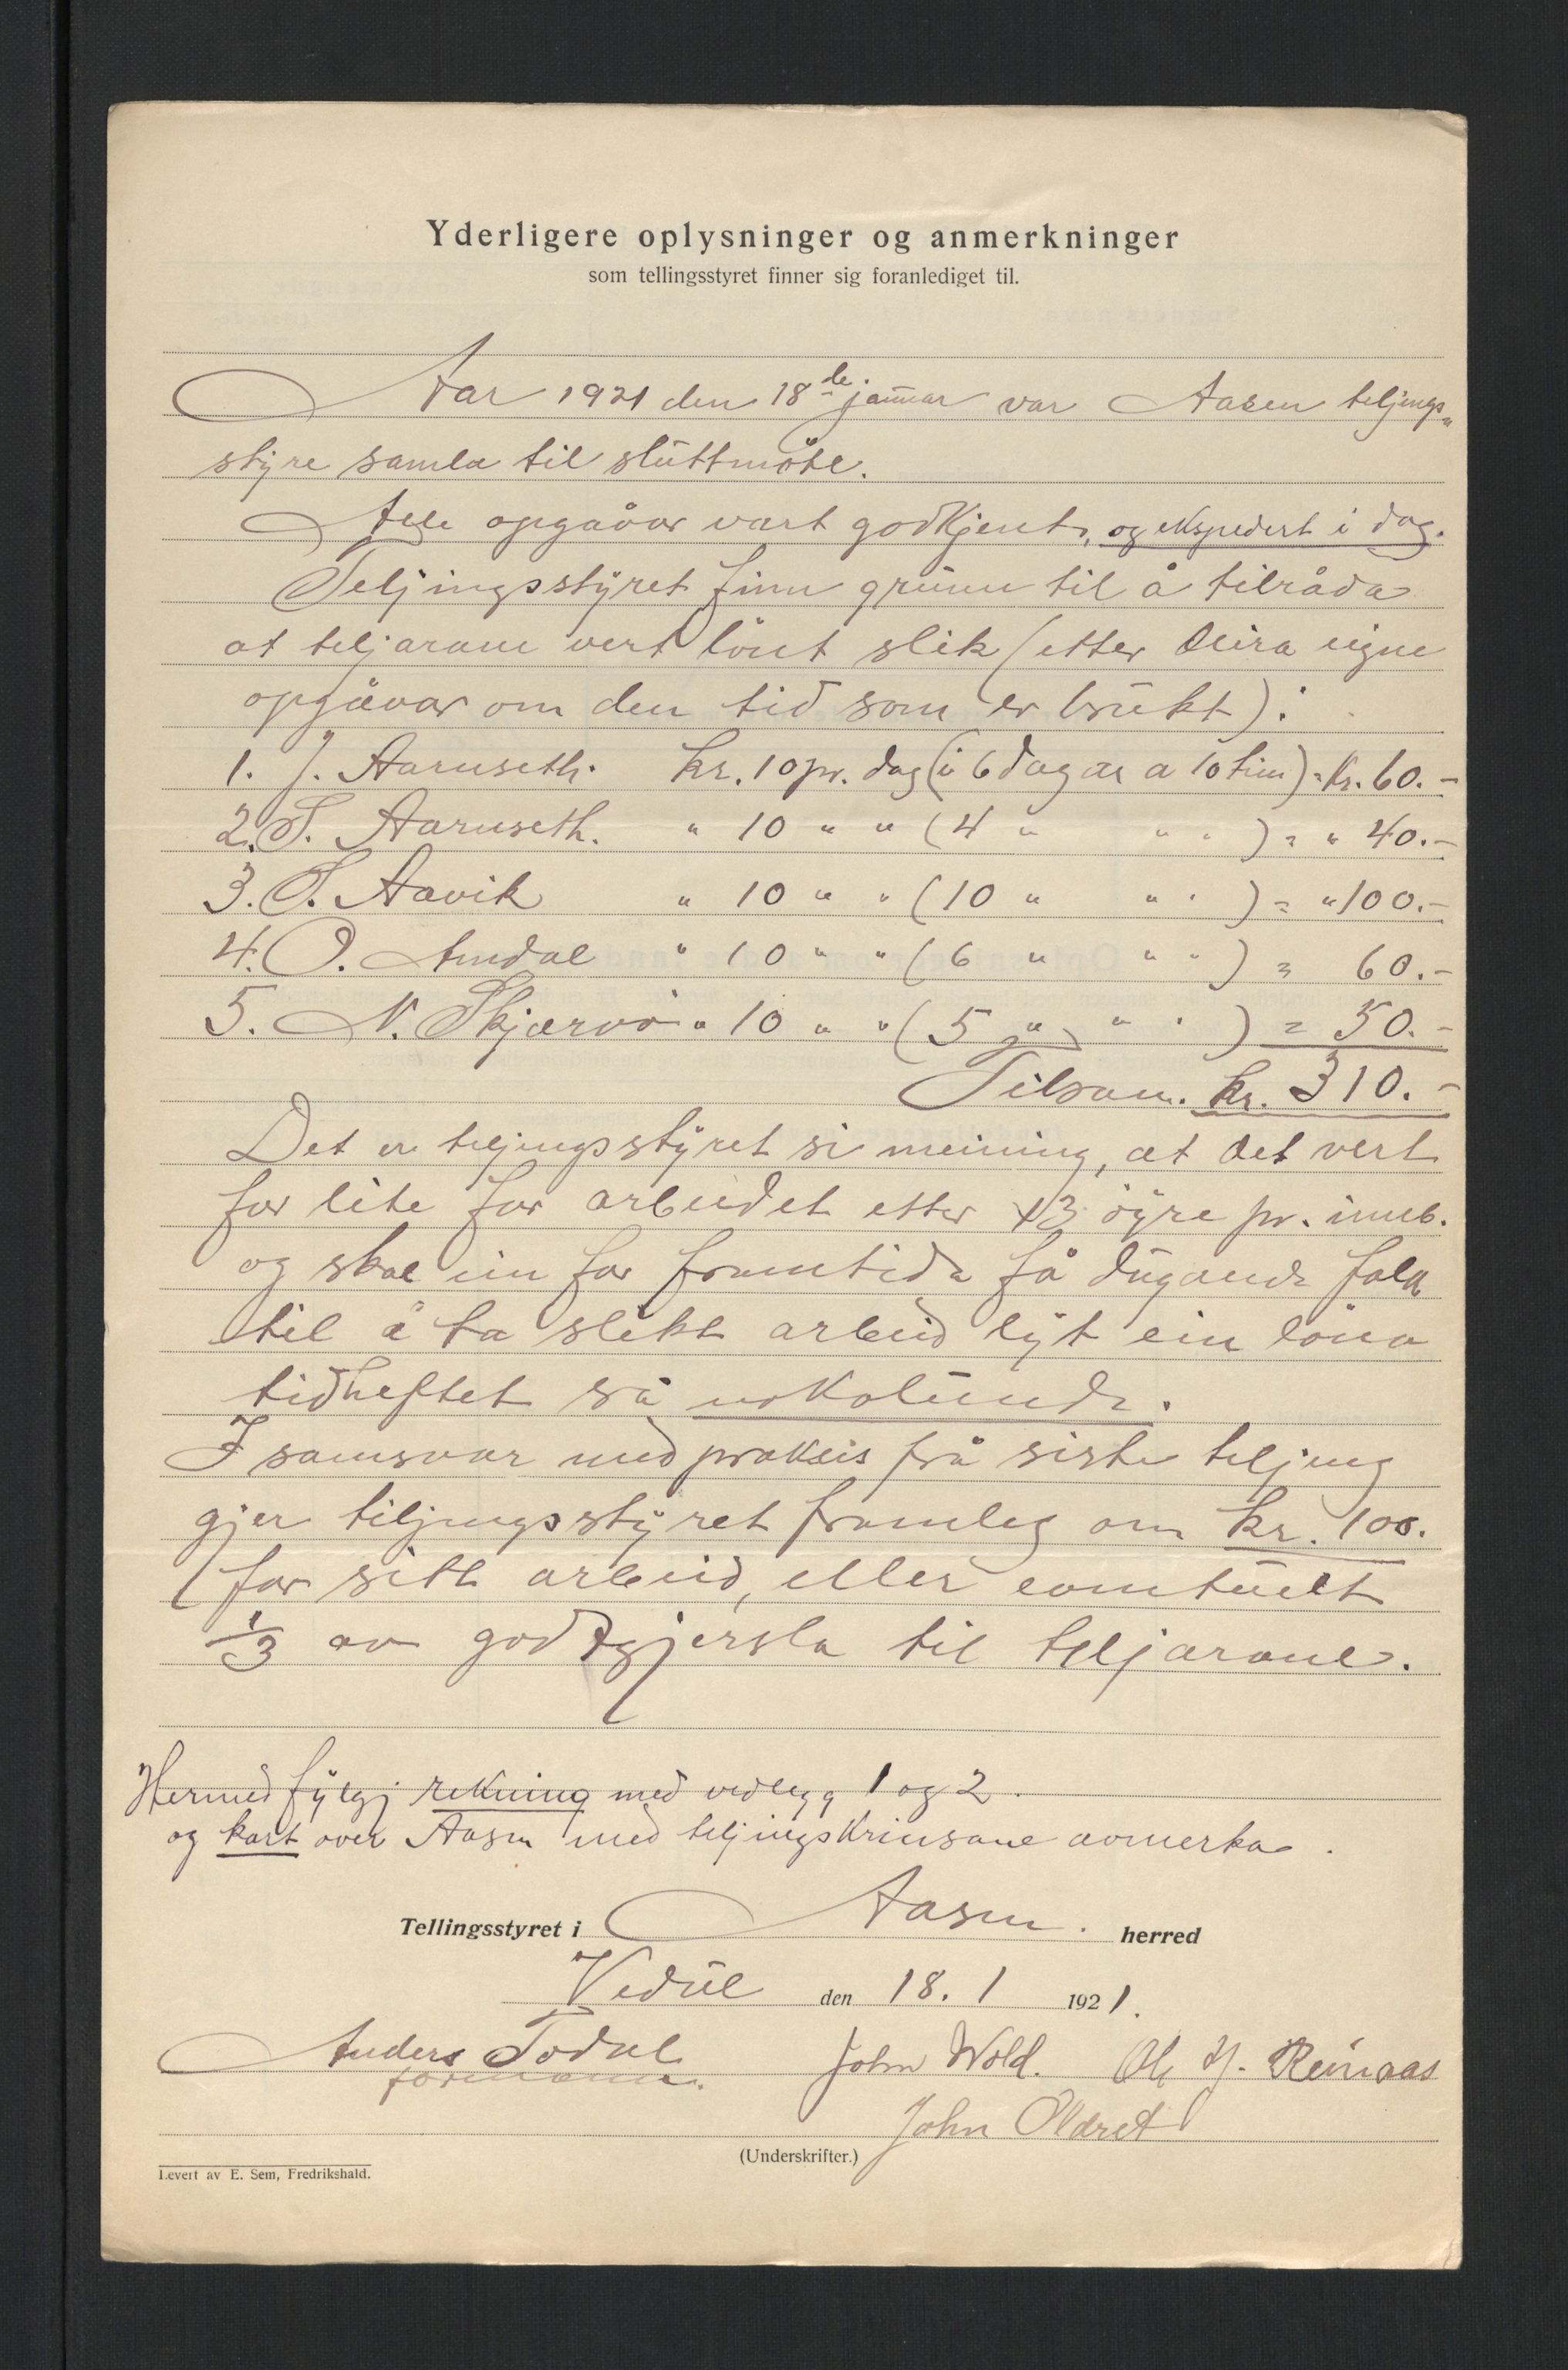 Yderligere oplysninger og anmerkninger
som tellingsstyret finner sig foranlediget til.
Aar 1921 den 18de januar var Aasen teljings-
styre samla til sluttmöte.
Alle opgåvor vart godkjent, og ekspedert i dag.
Teljingsstyret finn grunn til å tilråda
at teljarane vert lönt slik (etter deira eigne
opgåvor om den tid som er brukt):
1. J. Aarnseth. kr. 10 pr. dag (i 6 dagar a 10 tim) = kr. 60.-
2. T. Aarnseth. " 10 " " (4 " " " ) = " 40.-
3. T. Aavik " 10 " " (10 " " " ) = " 100.-
4. O. Amdal " 10 " " (6 " " " ) = 60.-
5. N. Skjærvö " 10 " " (5 " " " ) = 50.-
Tilsam. kr. 310.-
Det er teljingsstyret si meining, at det vert
for lite for arbeidet etter 13 öyre pr. innb.
og skal ein for framtida få dugande folk
til å ta slikt arbeid lyt ein löna
tidheftet så nokolunde.
I samsvar med praksis frå siste teljing
gjer teljingsstyret framleg om kr. 100.
for sitt arbeid, eller eventuelt
1/3 av godtgjersla til teljarane.
Hermed fylgj rekning med vedlegg 1 og 2.
og kart over Aasen med teljingskrinsane avmerka.
Tellingsstyret i Aasen. herred
Vedul den 18. 1 1921.
Anders Fodal John Wold. Ole J. Reinaas
formann.
John Oldret
(Underskrifter.)
Levert av E. Sem, Fredrikshald.